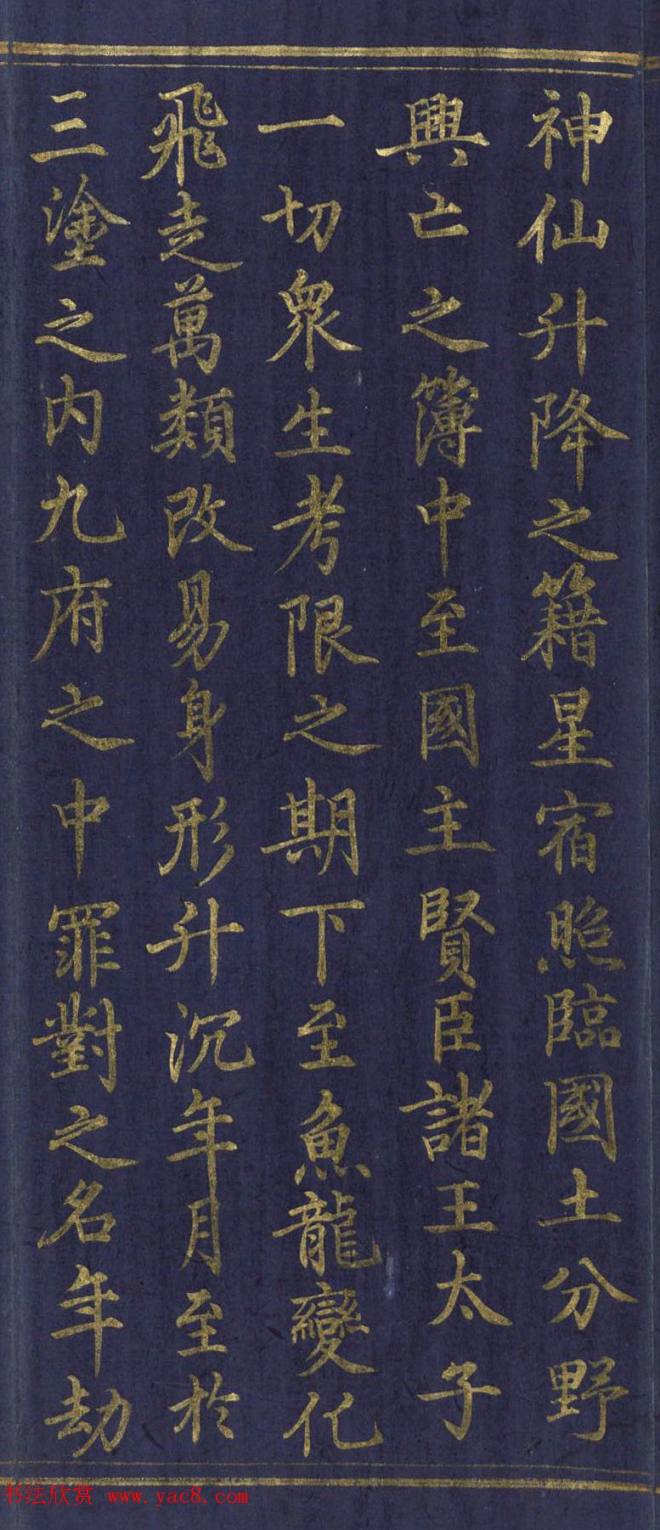 神仙升降之籍星宿照臨國土分野
興亡之簿中至國主賢臣諸王太子
一切衆生考限之期下至魚龍變化
飛走萬類改易身形升沉年月至於
三塗之内九府之中罪對之名年劫
书法欣赏 www.yac8.com